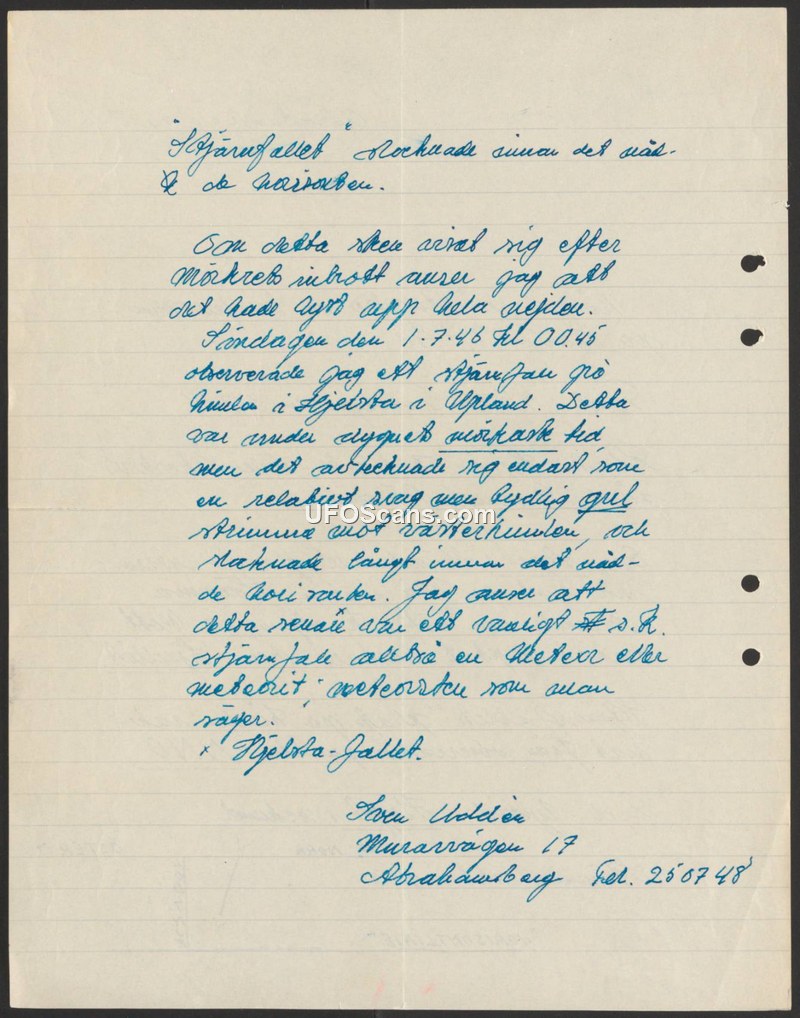 "Stjärnfallet" slocknade innan det nåd-
de horisonten.
Om detta sken visat sig efter
mörkrets inbrott anser jag att
det hade lyst upp hela nejden.
Söndagen den 1.7.46 kl 00.45
observerade jag ett stjärnfall på
himlen i Hjelsta i Upland. Detta
var under dygnets mörkast tid,
men det avtecknade sig endast som
en relativt svag men tydlig gul
strimma mot västerhimlen, och
slocknade långt innan det nåd-
de horisonten. Jag anser att
detta senare var ett vanligt s.k.
stjärnfall alltså en meteor eller
meteorit; meteorsten som man
säger.
x Hjelsta-fallet.
Sven Uddén
Murarvägen 17
Abrahamsberg Tel. 250748
UFOScans.com